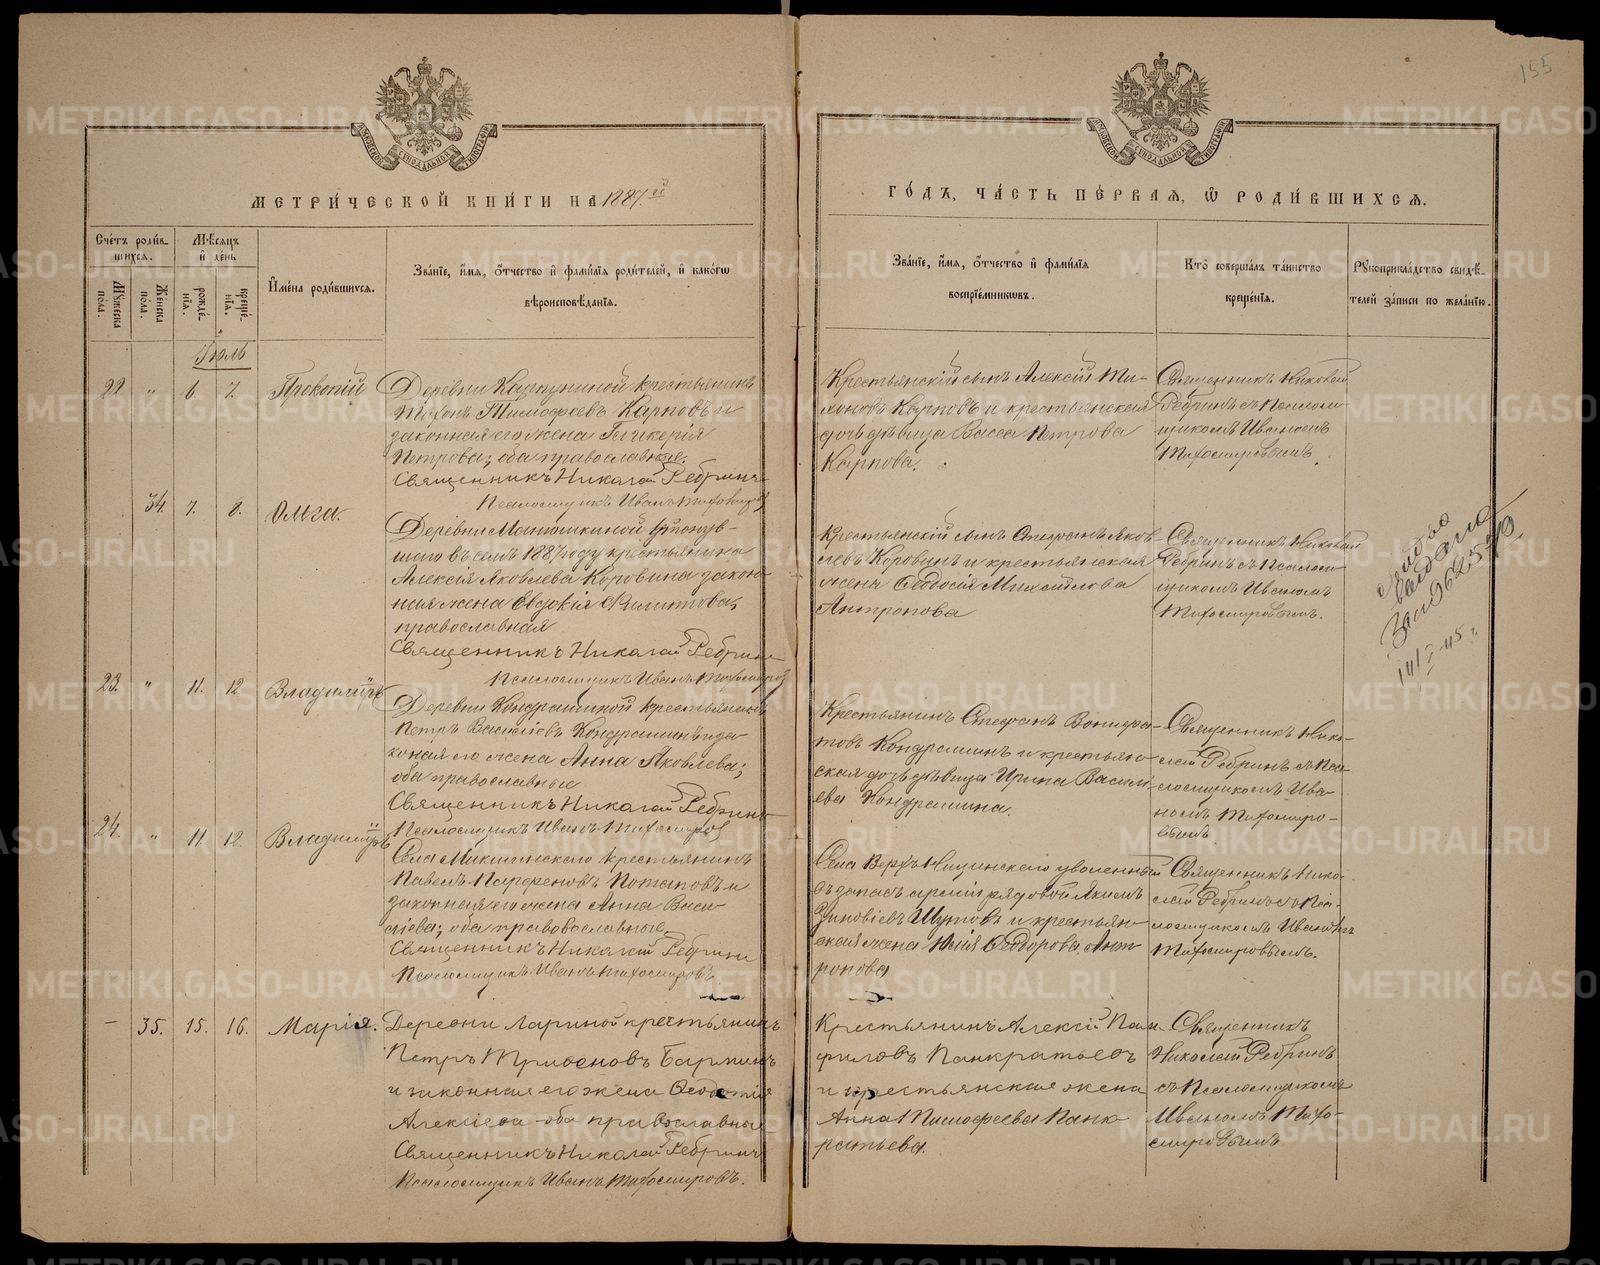 155
МЕТРИ́ЧЕСКОЙ КНИ́ГИ НА 1887.й
ГО́ДЪ, ЧА́СТЬ ПЕ́РВАЯ, Ѡ РОДИ́ВШИХСЯ.
Сче́тъ роди́в-
шихся.
Мꙋжеска пола.
Женска пола.
Мѣсяцъ и де́нь
рожде́-
нїя.
креще́-
нїя.
И҆мена̀ роди́вшихся.
Зва́нїе, и҆́мя, ѻ҆́тчество и҆ фамилїя роди́телей, и҆ како́гѡ
вѣроисповѣ́данїя.
Зва́нїе, и҆́мя, ѻ҆́тчество и҆ фамилїя
воспрїе́мниковъ.
Кто̀ соверша́лъ та́инство
креще́нїя.
Рꙋкоприкла́дство свидѣ́-
телей за́писи по жела́нїю.
Іюль
22 " 6. 7. Прокопій
Деревни Карпуниной крестьянинъ
Тихонъ Тимофеевъ Карповъ и
законная его жена Гликерія
Петрова; оба православные.
Священникъ Николай Ребринъ
Псаломщикъ Иванъ Тихомировъ
Крестьянскій сынъ Алексѣй Ти-
хоновъ Карповъ и крестьянская
дочь дѣвица Васса Петрова
Карпова.
Священникъ Николай
Ребринъ съ Псалом-
щикомъ Иваномъ
Тихомировымъ.
34. 7. 8. Ольга.
Деревни
въ семъ 1887 году крестьянина
Алексія Яковлева Коровина закон-
ная жена Евдокія Филиппова,
православная
Священникъ Николай Ребринъ
Псаломщикъ Иванъ Тихомировъ
Крестьянскій сынъ Стефанъ Яков-
левъ Коровинъ и крестьянская
жена Ѳеодосія Михайлова
Антропова
Священникъ Николай
Ребринъ съ Псалом-
щикомъ Иваномъ
Тихомировымъ.
выдано
14/I-45 г.
23. " 11. 12. Владиміръ
Деревни Кондрашиной крестьянинъ
Петръ Васильевъ Кондрашинъ и за-
конная его жена Анна Яковлева;
оба православные
Священникъ Николай Ребринъ
Псаломщикъ Иванъ Тихомировъ
Крестьянинъ Стефанъ Вонифа-
товъ Кондрашинъ и крестьян-
ская дочь дѣвица Ирина Василь-
ева Кондрашина.
Священникъ Нико-
лай Ребринъ съ Пса-
ломщикомъ Ива-
номъ Тихомиро-
вымъ
24. " 11 12. Владиміръ
Села крестьянинъ
Павелъ Парфеновъ Потаповъ и
законная его жена Анна Васи-
ліева; оба православные.
Священникъ Николай Ребринъ
Псаломщикъ Иванъ Тихомировъ
Села Верхъ-Ницинскаго уволенный
въ запасъ арміи рядовой Акимъ
Зиновіевъ Шутовъ и крестьян-
ская жена Юлія Ѳеодорова Ант-
ропова
Священникъ Нико-
лай Ребринъ съ Пса-
ломщикомъ Иваномъ
Тихомировымъ.
— 35. 15. 16. Марія.
Деревни Лариной крестьянинъ
Петръ Трифоновъ Бармин
и законная его жена Ѳеодотія
Алексіева оба православные
Священникъ Николай Ребринъ
Псаломщикъ Иванъ Тихомировъ.
Крестьянинъ Алексѣй Пам-
филовъ Панкратьевъ
и крестьянская жена
Анна Тимофеева Панк-
ратьева.
Священникъ
Николай Ребринъ
съ Псаломщикомъ
Иваномъ Тихо-
мировымъ
METRIKI.GASO-URAL.RU